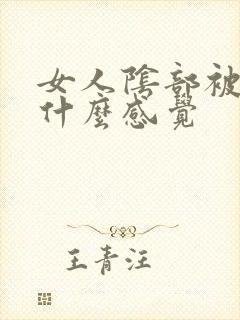 女人陰部被
什麼感覺
王青汪